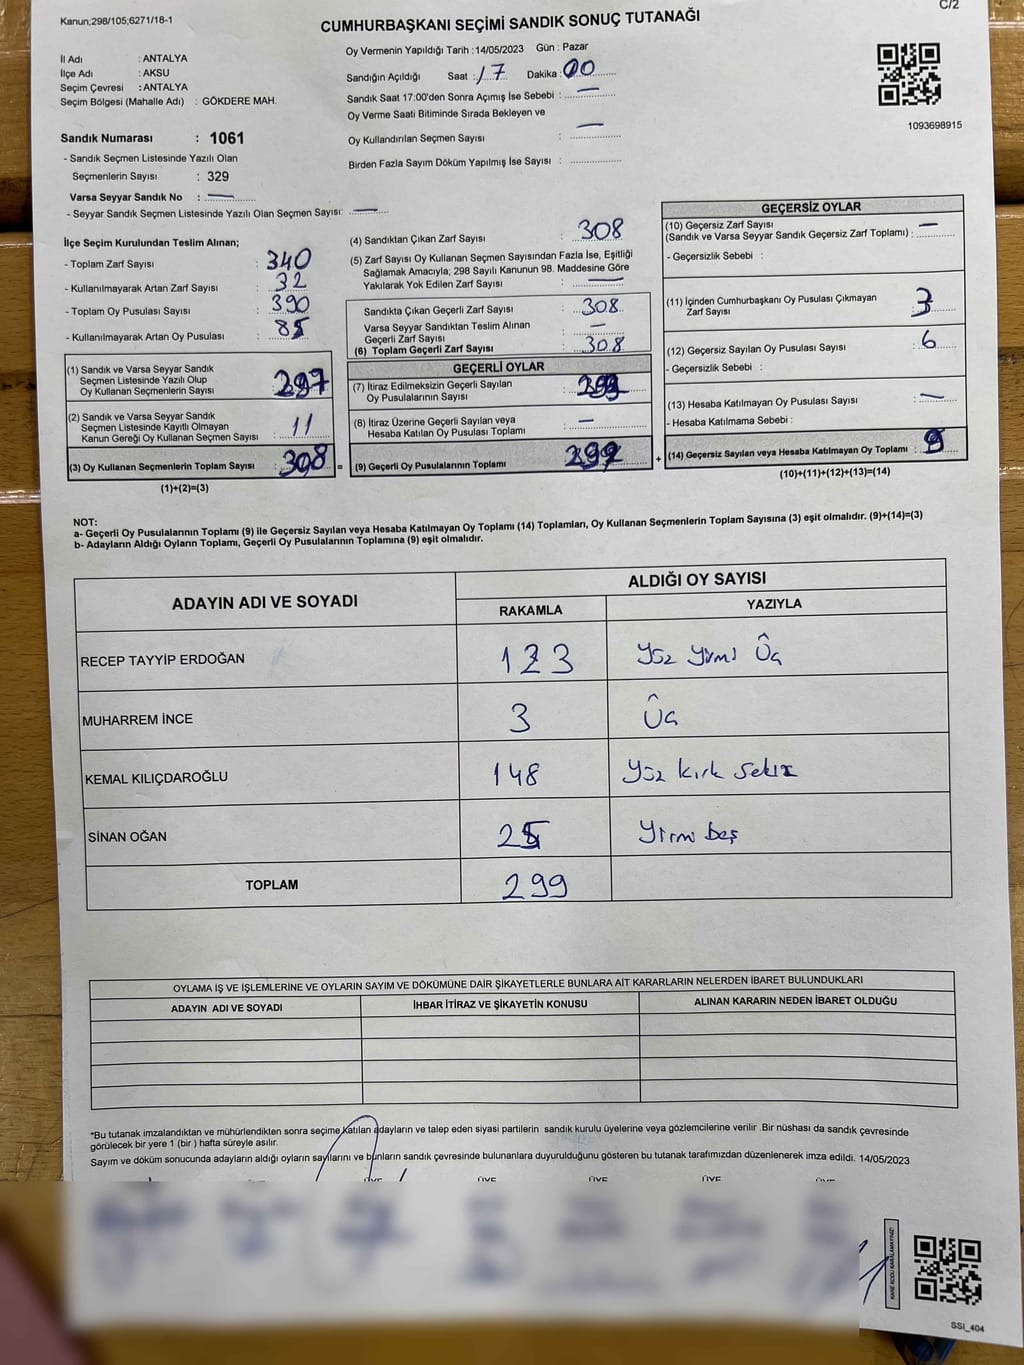 Kanun;298/105;6271/18-1
CUMHURBAŞKANI SEÇİMİ SANDIK SONUÇ TUTANAĞI
C/2
İl Adı : ANTALYA
İlçe Adı : AKSU
Seçim Çevresi : ANTALYA
Seçim Bölgesi (Mahalle Adı) : GÖKDERE MAH.
Sandık Numarası : 1061
- Sandık Seçmen Listesinde Yazılı Olan
Seçmenlerin Sayısı : 329
Varsa Seyyar Sandık No : —
- Seyyar Sandık Seçmen Listesinde Yazılı Olan Seçmen Sayısı: —
Oy Vermenin Yapıldığı Tarih : 14/05/2023 Gün : Pazar
Sandığın Açıldığı Saat : 17 Dakika : 00
Sandık Saat 17:00'den Sonra Açımış İse Sebebi : —
Oy Verme Saati Bitiminde Sırada Bekleyen ve
Oy Kullandırılan Seçmen Sayısı : —
Birden Fazla Sayım Döküm Yapılmış İse Sayısı :
1093698915
İlçe Seçim Kurulundan Teslim Alınan;
- Toplam Zarf Sayısı : 340
- Kullanılmayarak Artan Zarf Sayısı : 32
- Toplam Oy Pusulası Sayısı : 390
- Kullanılmayarak Artan Oy Pusulası :
(1) Sandık ve Varsa Seyyar Sandık
Seçmen Listesinde Yazılı Olup
Oy Kullanan Seçmenlerin Sayısı : 297
(2) Sandık ve Varsa Seyyar Sandık
Seçmen Listesinde Kayıtlı Olmayan
Kanun Gereği Oy Kullanan Seçmen Sayısı : 11
(3) Oy Kullanan Seçmenlerin Toplam Sayısı : 308
(1)+(2)=(3)
=
(4) Sandıktan Çıkan Zarf Sayısı : 308
(5) Zarf Sayısı Oy Kullanan Seçmen Sayısından Fazla İse, Eşitliği
Sağlamak Amacıyla; 298 Sayılı Kanunun 98. Maddesine Göre
Yakılarak Yok Edilen Zarf Sayısı : —
Sandıkta Çıkan Geçerli Zarf Sayısı : 308
Varsa Seyyar Sandıktan Teslim Alınan
Geçerli Zarf Sayısı : —
(6) Toplam Geçerli Zarf Sayısı : 308
GEÇERLİ OYLAR
(7) İtiraz Edilmeksizin Geçerli Sayılan
Oy Pusulalarının Sayısı : 299
(8) İtiraz Üzerine Geçerli Sayılan veya
Hesaba Katılan Oy Pusulası Toplamı : —
(9) Geçerli Oy Pusulalarının Toplamı : 299
+
GEÇERSİZ OYLAR
(10) Geçersiz Zarf Sayısı
(Sandık ve Varsa Seyyar Sandık Geçersiz Zarf Toplamı) : —
- Geçersizlik Sebebi :
(11) İçinden Cumhurbaşkanı Oy Pusulası Çıkmayan
Zarf Sayısı : 3
(12) Geçersiz Sayılan Oy Pusulası Sayısı : 6
- Geçersizlik Sebebi :
(13) Hesaba Katılmayan Oy Pusulası Sayısı : —
- Hesaba Katılmama Sebebi :
(14) Geçersiz Sayılan veya Hesaba Katılmayan Oy Toplamı : 9
(10)+(11)+(12)+(13)=(14)
NOT:
a- Geçerli Oy Pusulalarının Toplamı (9) ile Geçersiz Sayılan veya Hesaba Katılmayan Oy Toplamı (14) Toplamları, Oy Kullanan Seçmenlerin Toplam Sayısına (3) eşit olmalıdır. (9)+(14)=(3)
b- Adayların Aldığı Oyların Toplamı, Geçerli Oy Pusulalarının Toplamına (9) eşit olmalıdır.
ADAYIN ADI VE SOYADI ALDIĞI OY SAYISI
RAKAMLA YAZIYLA
RECEP TAYYİP ERDOĞAN 123 Yüz Yirmi Üç
MUHARREM İNCE 3 Üç
KEMAL KILIÇDAROĞLU 148 Yüz kırk sekiz
SİNAN OĞAN 25 Yirmi beş
TOPLAM 299
OYLAMA İŞ VE İŞLEMLERİNE VE OYLARIN SAYIM VE DÖKÜMÜNE DAİR ŞİKAYETLERLE BUNLARA AİT KARARLARIN NELERDEN İBARET BULUNDUKLARI
ADAYIN ADI VE SOYADI İHBAR İTİRAZ VE ŞİKAYETİN KONUSU ALINAN KARARIN NEDEN İBARET OLDUĞU
*Bu tutanak imzalandıktan ve mühürlendikten sonra seçime katılan adayların ve talep eden siyasi partilerin sandık kurulu üyelerine veya gözlemcilerine verilir .Bir nüshası da sandık çevresinde
görülecek bir yere 1 (bir ) hafta süreyle asılır.
Sayım ve döküm sonucunda adayların aldığı oyların sayılarını ve bunların sandık çevresinde bulunanlara duyurulduğunu gösteren bu tutanak tarafımızdan düzenlenerek imza edildi. 14/05/2023
ÜYE ÜYE ÜYE ÜYE ÜYE
KARE KODU KARALAMAYINIZ!
SSİ_404